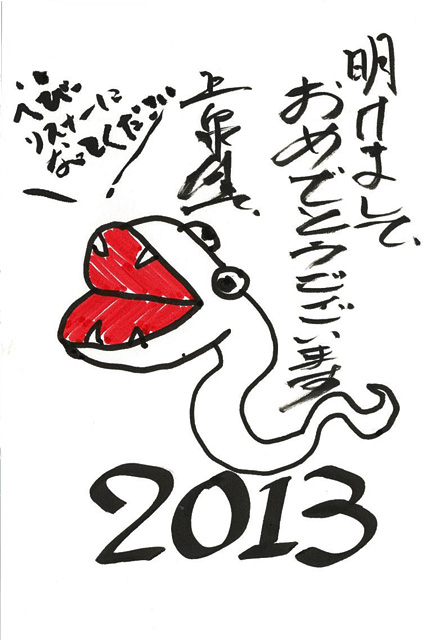 明けまして、
おめでとうございます
上泉雄一で、
へび〜
リスナーに
なってください
2013